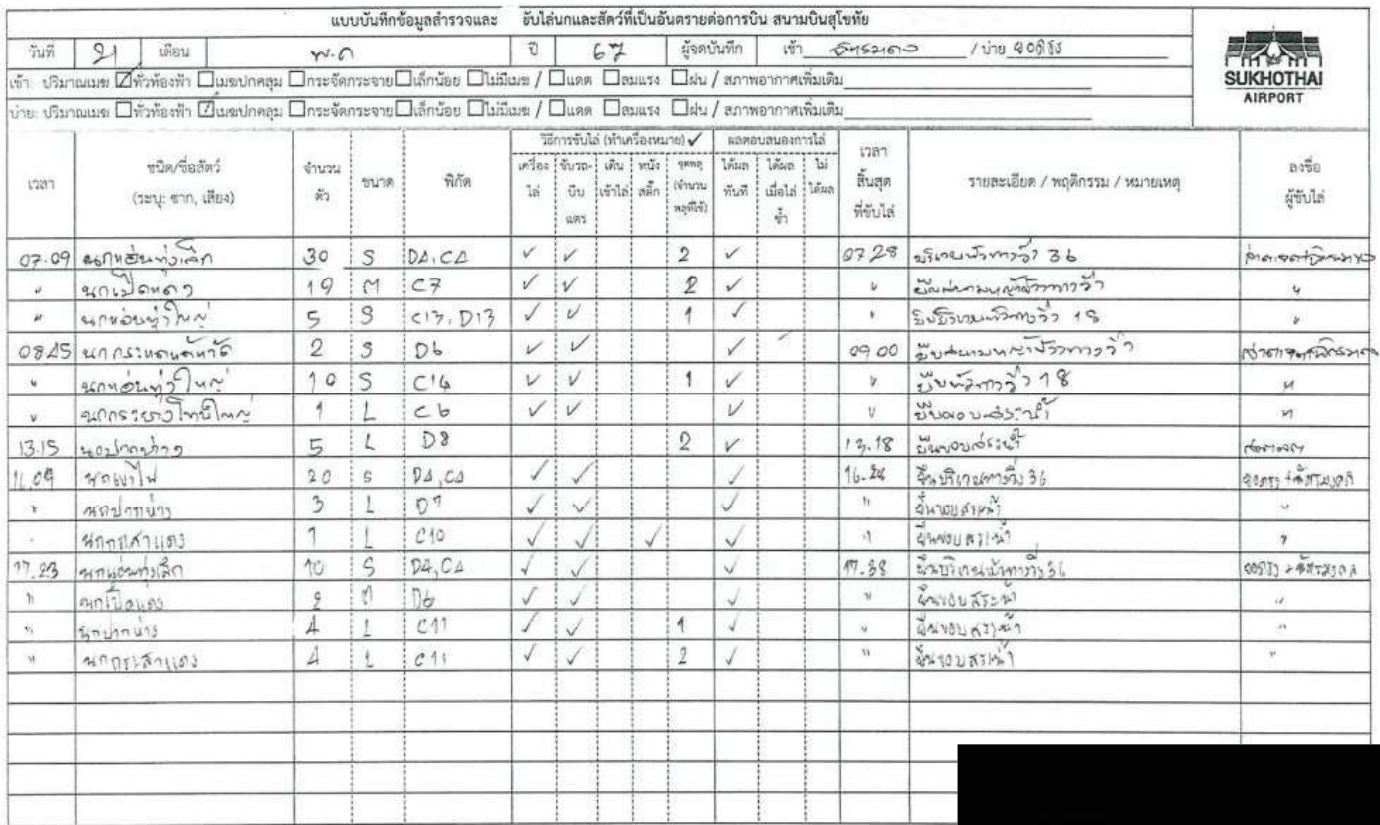 แบบบันทึกข้อมูลสำรวจและ ขับไล่นกและสัตว์ที่เป็นอันตรายต่อการบิน สนามบินสุโขทัย
วันที่ 21 เดือน พ.ค ปี 67 ผู้จดบันทึก เช้า / บ่าย
SUKHOTHAI
AIRPORT
เช้า: ปริมาณเมฆ ☑ทั่วท้องฟ้า ☐เมฆปกคลุม ☐กระจัดกระจาย ☐เล็กน้อย ☐ไม่มีเมฆ / ☐แดด ☐ลมแรง ☐ฝน / สภาพอากาศเพิ่มเติม
บ่าย: ปริมาณเมฆ ☐ทั่วท้องฟ้า ☑เมฆปกคลุม ☐กระจัดกระจาย ☐เล็กน้อย ☐ไม่มีเมฆ / ☐แดด ☐ลมแรง ☐ฝน / สภาพอากาศเพิ่มเติม
เวลา ชนิด/ชื่อสัตว์ (ระบุ: ซาก, เสียง) จำนวน ตัว ขนาด พิกัด วิธีการขับไล่ (ทำเครื่องหมาย) ✓ เครื่อง ไล่ ขับรถ- บีบ แตร เดิน เข้าไล่ หนัง สติ๊ก จุดพลุ (จำนวน พลุที่ใช้) ผลตอบสนองการไล่ ได้ผล ทันที ได้ผล เมื่อไล่ ซ้ำ ไม่ ได้ผล เวลา สิ้นสุด ที่ขับไล่ รายละเอียด / พฤติกรรม / หมายเหตุ ลงชื่อ ผู้ขับไล่
07.09 นกแอ่นทุ่งเล็ก 30 S D4, C4 ✓ ✓ 2 ✓ 07 28 บริเวณหัวทางวิ่ง 36
" นกเป็ดแดง 19 M C7 ✓ ✓ 2 ✓ " "
" นกแอ่นทุ่งใหญ่ 5 S C13, D13 ✓ ✓ 1 ✓ " 18 "
08.45 นกกระแตแต้แว้ด 2 S D6 ✓ ✓ ✓ 09 00
" นกแอ่นทุ่งใหญ่ 10 S C14 ✓ ✓ 1 ✓ " ยืนหัวทางวิ่ง 18 "
" 1 L C6 ✓ ✓ ✓ " ยืนขอบสระน้ำ "
13.15 นกปากห่าง 5 L D8 2 ✓ 13.18 ยืนขอบสระน้ำ
16.09 นกเขาไฟ 20 S D4, C4 ✓ ✓ ✓ 16.24 ยืนบริเวณทางวิ่ง 36
" นกปากห่าง 3 L D7 ✓ ✓ ✓ " ยืนขอบสระน้ำ "
" นกกระสาแดง 1 L C10 ✓ ✓ ✓ ✓ " ยืนขอบสระน้ำ "
17.23 นกแอ่นทุ่งเล็ก 10 S D4, C4 ✓ ✓ ✓ 17.38 ยืนบริเวณหัวทางวิ่ง 36
" นกเป็ดแดง 2 M D6 ✓ ✓ ✓ " ยืนขอบสระน้ำ "
" นกปากห่าง 4 L C11 ✓ ✓ 1 ✓ " ยืนขอบสระน้ำ "
" นกกระสาแดง 4 L C11 ✓ ✓ 2 ✓ " ยืนขอบสระน้ำ "